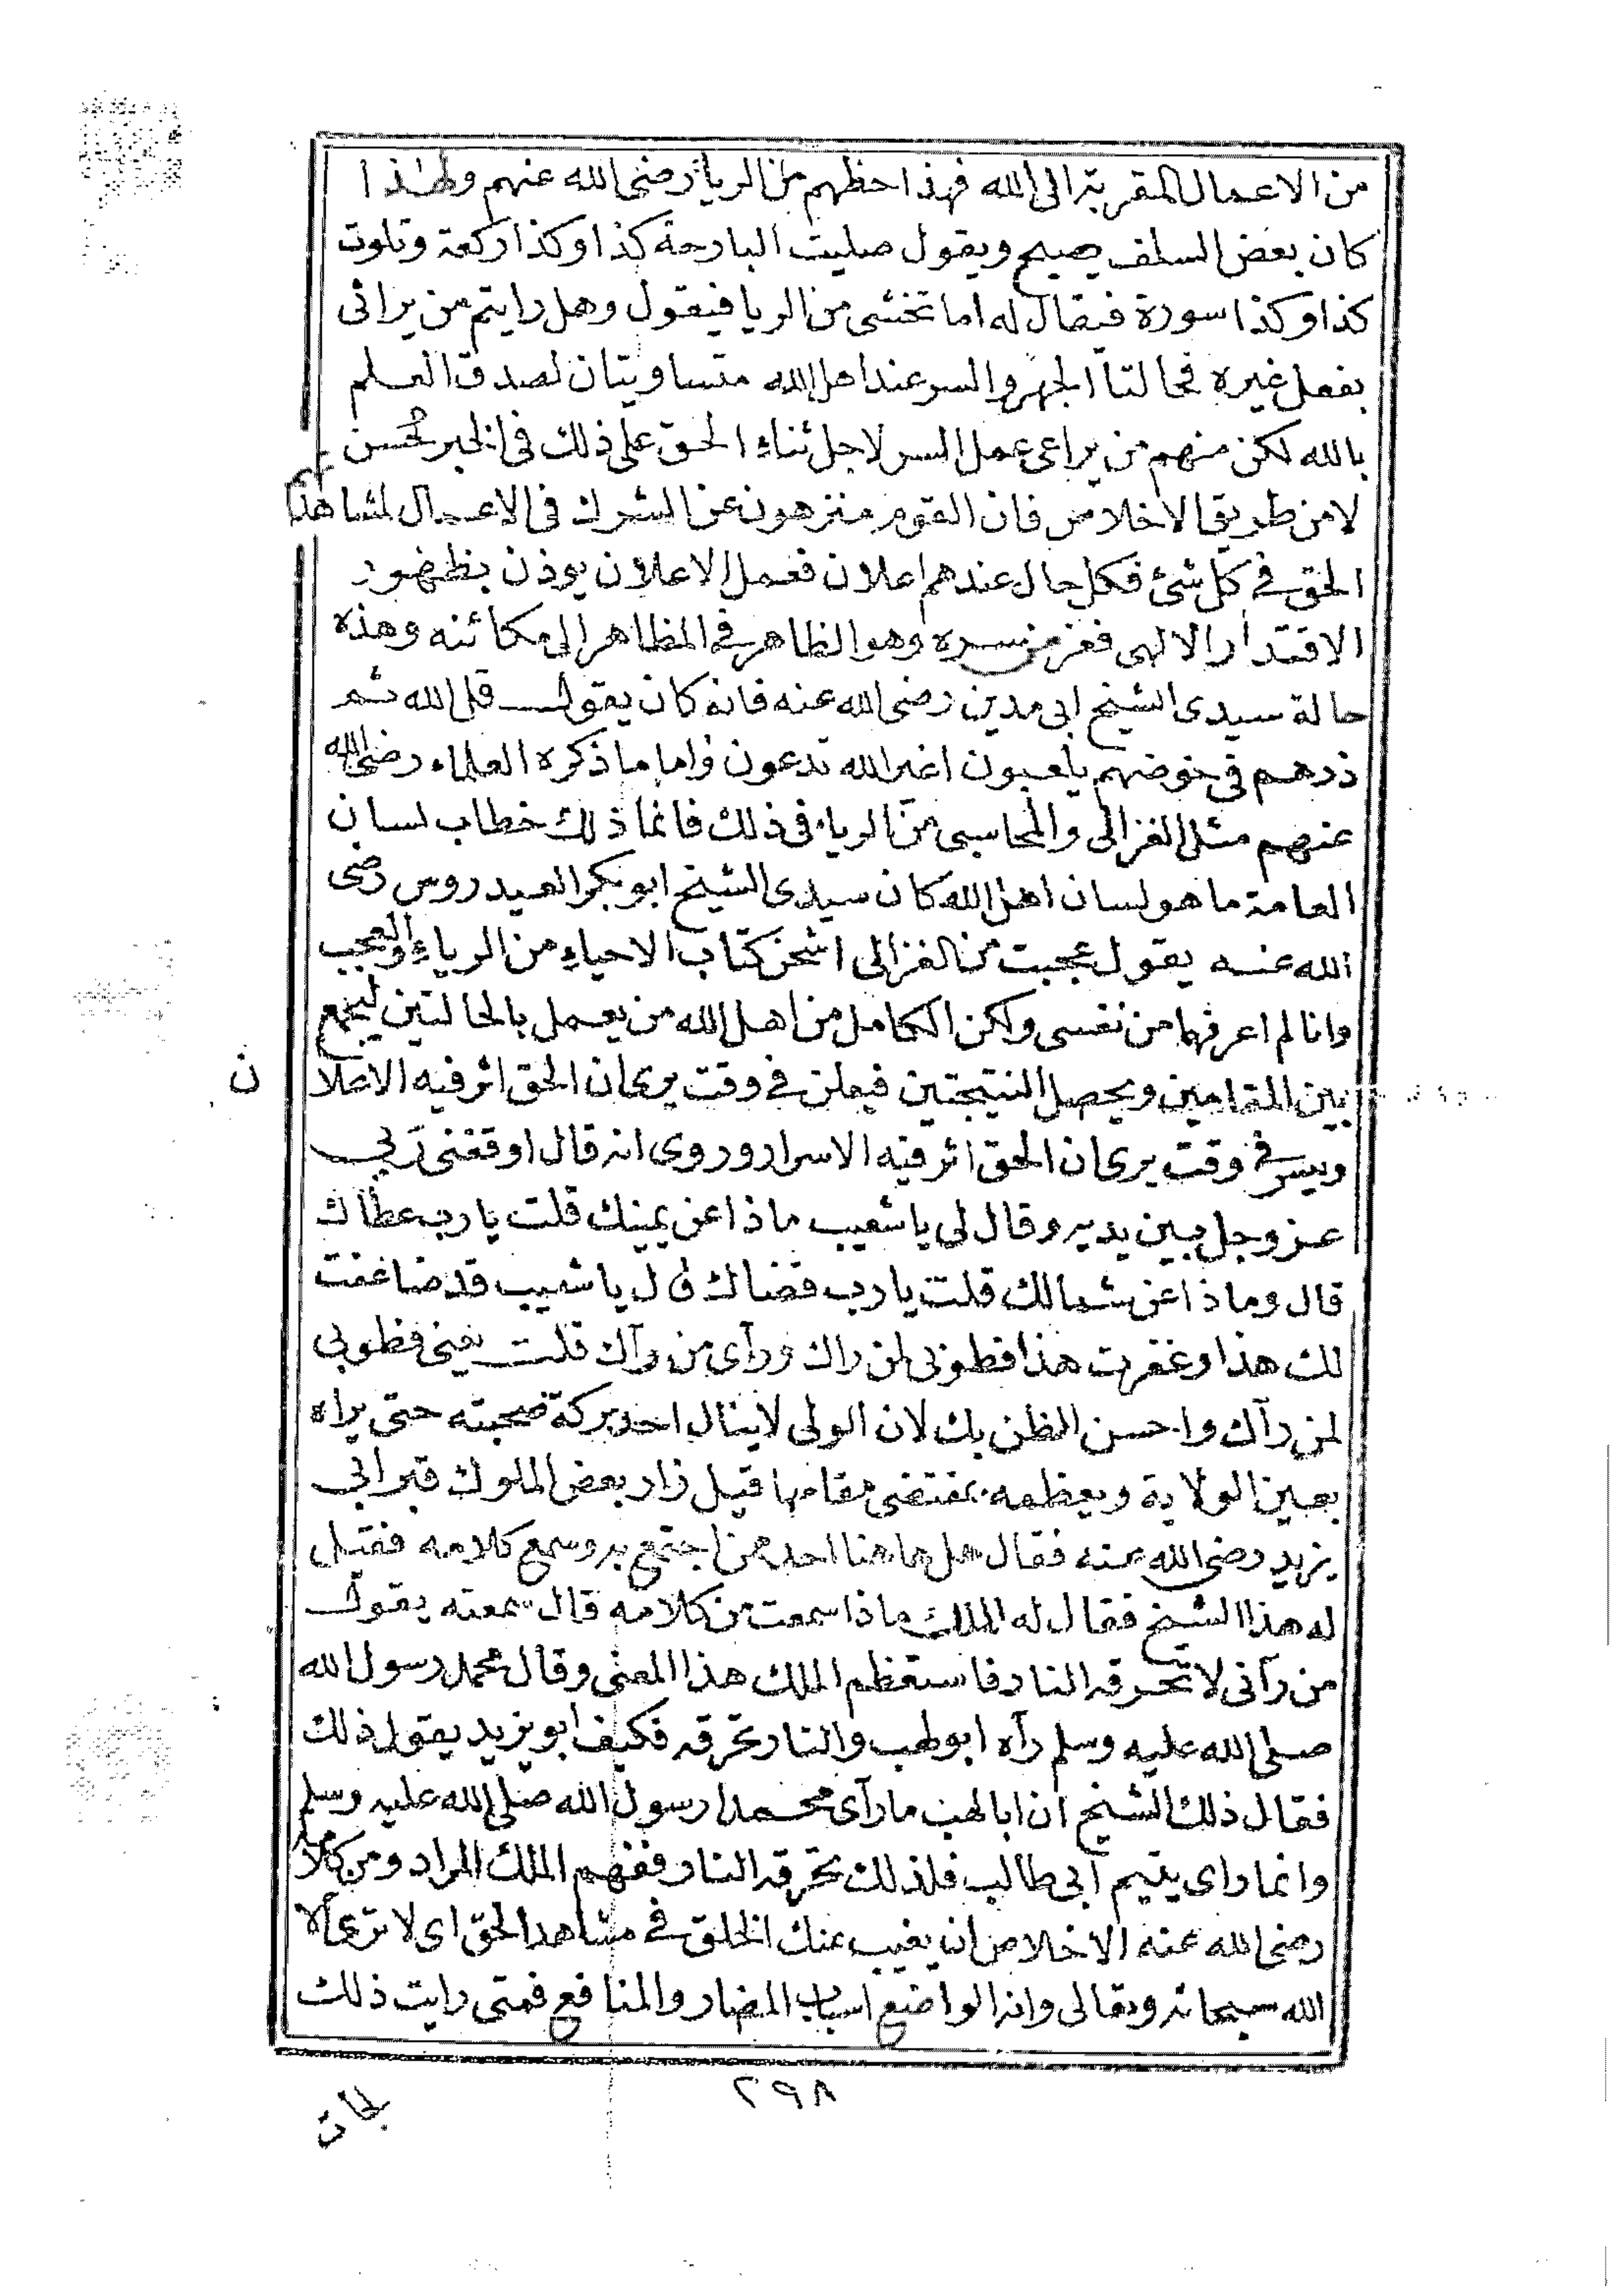 من الاعمال المقربة الى الله فهذا حظهم من الريا رضى الله عنهم ولهذا
كان بعض السلف يصبح ويقول صليت البارحة كذا وكذا ركعة وتلوت
كذا وكذا سورة فيقال له اما تخشى من الريا فيقول وهل رايتم من يرائى
بفعل غيره فحالتا الجهر والسر عند اهل الله متساويتان لصدق العلم
بالله لكن منهم من يراعى عمل السر لاجل ثناء الحق على ذلك فى الخبر لحسن
لا من طريق الاخلاص فان القوم منزهون عن الشرك فى الاعمال لمشاهدتهم
الحق فى كل شئ فكل حال عندهم اعلان فعمل الاعلان يوذن بظهور
الاقتدار الالهى فعز من سره وهو الظاهر فى المظاهر الى مكائنه وهذه
حالة سيدى الشيخ ابى مدين رضى الله عنه فانه كان يقول قل الله ثم
ذرهم فى خوضهم يلعبون اغير الله تدعون واما ما ذكره العلماء رضى الله
عنهم مثل الغزالى والمحاسبى من الرياء فى ذلك فانما ذلك خطاب لسان
العامة ما هو لسان اهل الله كان سيدى الشيخ ابو بكر العيدروس رضى
الله عنه يقول عجبت من الغزالى اشحن كتاب الاحياء من الرياء والعجب
وانا لم اعرفهما من نفسى ولكن الكامل من اهل الله من يعمل بالحالتين ليجمع
بين المقامين ويحصل النتيجتين فيعلن فى وقت يرى ان الحق اثر فيه الاعلا
ن
ويسر فى وقت يرى ان الحق اثر فيه الاسرار وروى انه قال اوقفنى ربى
عز وجل بين يديه وقال لى يا شعيب ماذا عن يمينك قلت يا رب عطاك
قال وماذا عن شمالك قلت يا رب قضاك قال يا شعيب قد ضاعفت
لك هذا وغفرت هذا فطوبى لمن راك ورآى من رآك قلت يعنى فطوبى
لمن رآك واحسن الظن بك لان الولى لا ينال احد بركة صحبته حتى يراه
بعين الولاية ويعظمه بمقتضى مقامها قيل زار بعض الملوك قبر ابى
يزيد رضى الله عنه فقال هل هاهنا احد ممن اجتمع به وسمع كلامه فقيل
له هذا الشيخ فقال له الملك ماذا سمعت من كلامه قال سمعته يقول
من رآنى لا تحرقه النار فاستعظم الملك هذا المعنى وقال محمد رسول الله
صلى الله عليه وسلم رآه ابو لهب والنار تحرقه فكيف ابو يزيد يقول ذلك
فقال ذلك الشيخ ان ابا لهب ما رآى محمدا رسول الله صلى الله عليه وسلم
وانما راى يتيم ابى طالب فلذلك تحرقه النار ففهم الملك المراد ومن كلامه
رضى الله عنه الاخلاص ان يغيب عنك الخلق فى مشاهد الحق اى لا ترى الا
الله سبحانه وتعالى وانه الواضع اسباب المضار والمنافع فمتى رايت ذلك
٢٩٨